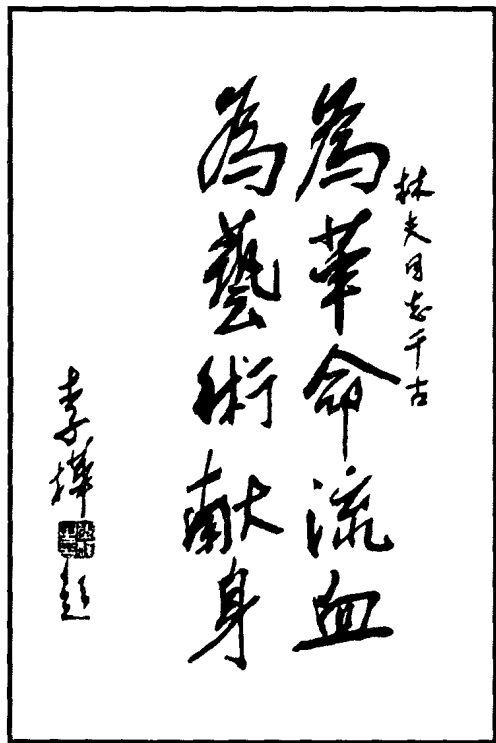 林夫同志千古
為革命流血
為藝術献身
李樺题